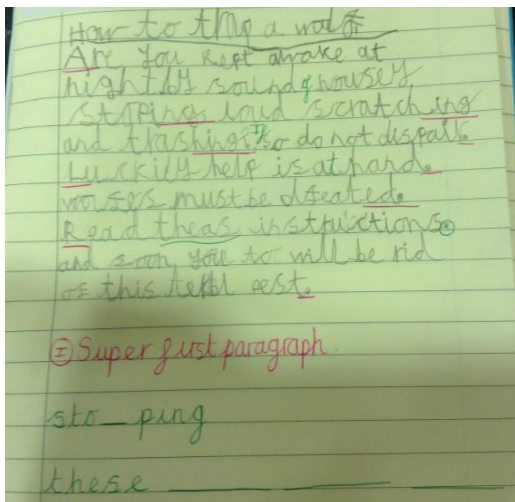 How to trap a wolf
Are you kept awake at
night by sound of housey
stoping loud scratching
and trashing? If so do not dispair.
Luckily help is at hand.
wolfs must be dfeated.
Read theas instructions
and soon you to will be rid
of this pest.
I Super first paragraph.
sto_ping
these